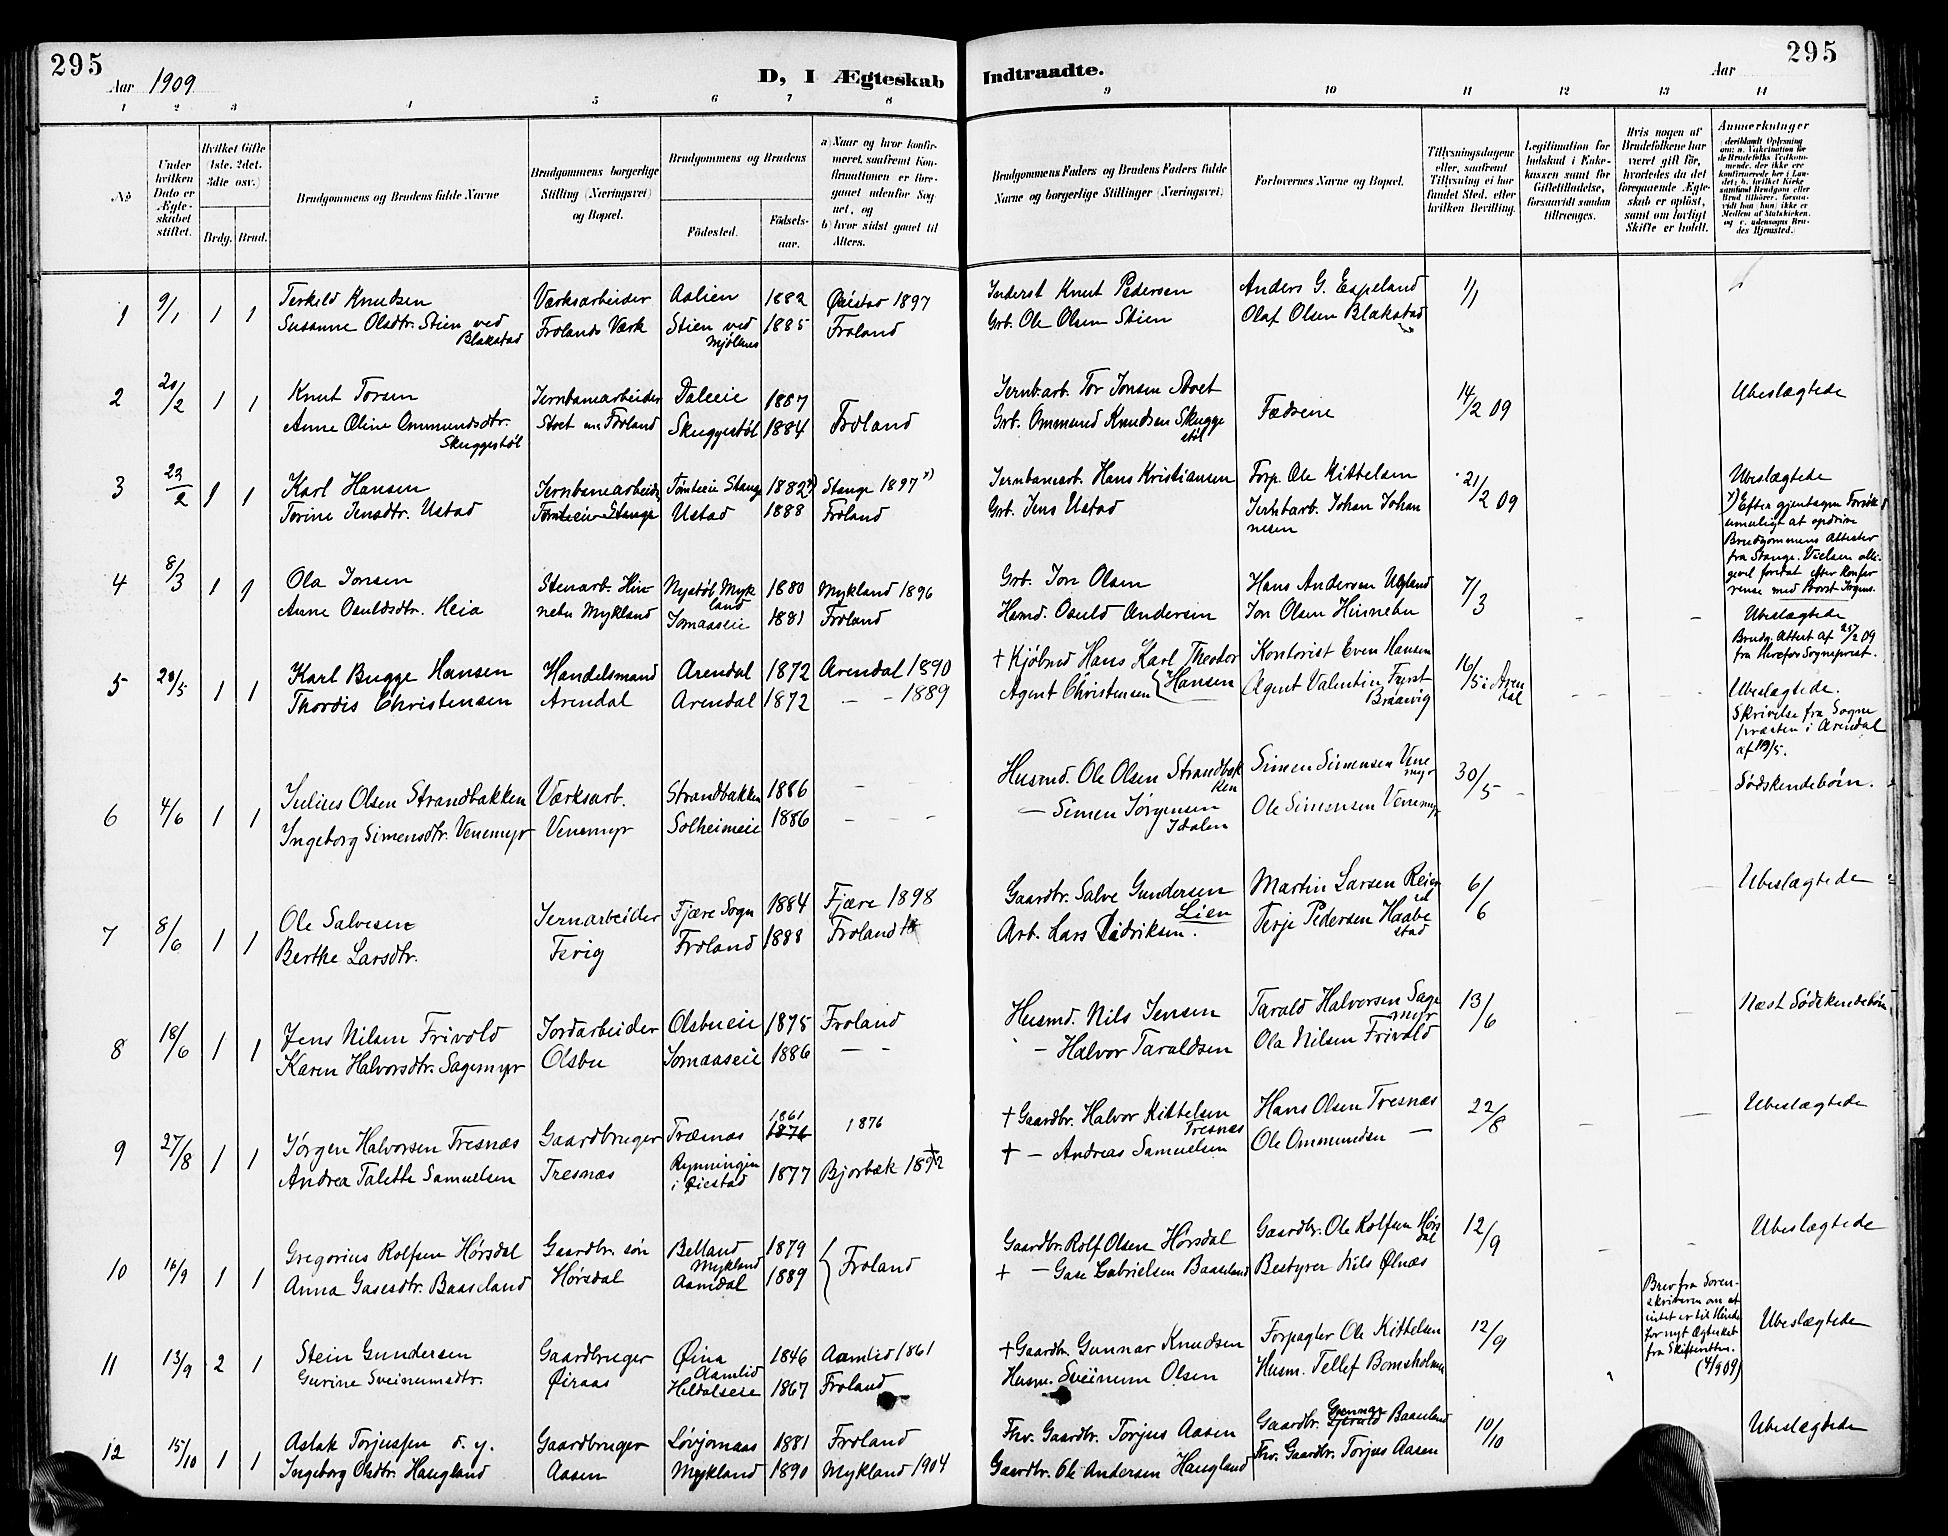 295
Aar 1909
D, I Ægteskab
Indtraadte.
Aar
295
1 2 3 4 5 6 7 8 9 10 11 12 13 14
No
Under hvilken Dato er Ægteskabet stiftet.
Hvilket Gifte (1ste. 2det. 3die osv.)
Brdg. Brud.
Brudgommens og Brudens fulde Navne
Brudgommens borgerlige Stilling (Næringsvei) og Bopæl.
Brudgommens og Brudens
Fødested.
Fødselsaar.
a) Naar og hvor konfirmeret, saafremt Konfirmationen er foregaaet udenfor Sognet, og
b) hvor sidst gaaet til Alters.
Brudgommens Faders og Brudens Faders fulde Navne og borgerlige Stillinger (Næringsvei).
Forlovernes Navne og Bopæl.
Tillysningsdagene eller, saafremt Tillysning ei har fundet Sted, efter hvilken Bevilling.
Legitimation for Indskud i Enkekassen samt for Giftetilladelse, forsaavidt saadan tiltrænges.
Hvis nogen af Brudefolkene har været gift før, hvorledes da det foregaaende Ægteskab er opløst, samt om lovligt Skifte er holdt.
Anmerkninger
1 9/1 1 1
Terkild Knudsen Værksarbeider Aalien 1882 Øiestad 1897 Inderst Knut Pedersen Anders G. Espeland 1/1
Susanne Olsdtr. Stien ved Blakstad Frolands Værk Stien ved Mjølens 1885 Froland Grb. Ole Olsen Stien Olaf Olsen Blakstad
2 20/2 1 1
Knut Torsen Jernbanearbeider Daleie 1887 Jernb.arb. Tor Jonsen Stoet 14/2 09 Ubeslægtede
Anne Oline Ommundsdtr. Skuggestøl Stoet Froland Skuggestøl 1884 Froland Grb. Ommund Knudsen Skuggestøl Fædrene
3 23/2 1 1
Karl Hansen Jernbanearbeider Tomteeie Stange 1882 Stange 1897 x) Jernbanearb. Hans Kristiansen Forp. Ole Kittelsen 21/2 09 Ubeslægtede
Torine Jensdtr. Ustad Tomteeie Stange Ustad 1888 Froland Grb. Jens Ustad Jernbarb. Johan Johannesen
x) Efter gjentagne Forsøk umuligt at opdrive
Brudgommens Attester
fra Stange. Vielsen alligevel foretat efter Konferense med Provst
4 8/3 1 1
Ola Jonsen Stenarb. Hinnebu Mykland Nystøl Mykland 1880 Mykland 1896 Grb. Jon Olsen Hans Andersen Ugland 7/3
Anne Osuldsdtr. Heia Jomaaseie 1881 Froland Husmd. Osuld Andersen Jon Olsen Hinnebu - -
Ubeslægtede
Brudg. Attest af 25/2 09
fra Herefos Sogneprest.
5 20/5 1 1
Karl Bugge Hansen Handelsmand Arendal 1872 Arendal 1890 † Kjøbmd Hans Karl Theodor Hansen Kontorist Even Hansen 16/5 i Arendal
Thordis Christensen Arendal Arendal 1872 - - 1889 Agent Christensen Agent Valentin Fyrst Braavig
Ubeslægtede.
Skrivelse fra Sogne
præsten i Arendal
af 19/5.
6 4/6 1 1
Julius Olsen Strandbakken Værksarb. Strandbakken 1886 - Husmd. Ole Olsen Strandbakken Simen Simensen Venemyr 30/5 - Sødskendebørn.
Ingeborg Simensdtr. Venemyr Venemyr Solheimeie 1886 - - - - Simen Jørgensen Idalen Ole Simensen Venemyr
7 8/6 1 1
Ole Salvesen Jernarbeider Fjære Sogn 1884 Fjære 1898 Gaardbr. Salve Gundersen Lien Martin Larsen 6/6 Ubeslægtede
Berthe Larsdtr. Ferig Froland 1888 Froland Arb. Lars Didriksen. Terje Pedersen Haabestad
8 18/6 1 1
Jens Nilsen Frivold Jordarbeider Olsbueie 1875 Froland Husmd. Nils Jensen Tarald Halvorsen Sagemyr 13/6 Næst Sødskendebørn
Karen Halvorsdtr. Sagemyr Olsbu Jomaaseie 1886 - - - Halvor Taraldsen Ola Nilsen Frivold
9 27/8 1 1
Jørgen Halvorsen Tresnæs Gaardbruger Træsnæs 1861 1876 1876 † Gaardbr. Halvor Kittelsen Tresnæs Hans Olsen Tresnæs 22/8 - Ubeslægtede
Andrea Talette Samuelsen Tresnæs Rynningen i Øiestad 1877 Bjorbæk 1892 † - Andreas Samuelsen Ole Ommundsen -
10 16/9 1 1
Gregorius Rolfsen Hørsdal Gaardbr. søn Belland Mykland 1879 Froland Gaardbr. Rolf Olsen Hørsdal Gaardbr. Ole Rolfsen Hørsdal 12/9 Ubeslægtede
Anna Gasesdtr. Baaseland Hørsdal Aamdal 1889 † - Gase Gabrielsen Baaseland Bestyrer Nils Ølnæs
11 13/9 2 1
Stein Gundersen Gaardbruger Øina Aamlid 1846 Aamlid 1861 † Gaardbr. Gunnar Knudsen Forpagter Ole Kittelsen 12/9
Gurine Sveinumsdtr. Øiraas Hildalseie 1867 Froland Husm. Sveinum Olsen Husm. Tellef Bomsholmen
Brev fra Sorenskriveren om at intet er til Hinder for nyt Ægteskab fra Skifteretten. (4/9 09)
Ubeslægtede
12 15/10 1 1
Aslak Torjussen d. y. Gaardbruger Løvjomaas 1881 Froland Fhv. Gaardbr. Torjus Aasen Gaardbr. Gunnar Baaseland 10/10 Ubeslægtede
Ingeborg Olsdtr. Haugland Aasen Mykland 1890 Mykland 1904 Gaardbr. Ole Andersen Haugland Fhv. Gaardbr. Torjus Aasen